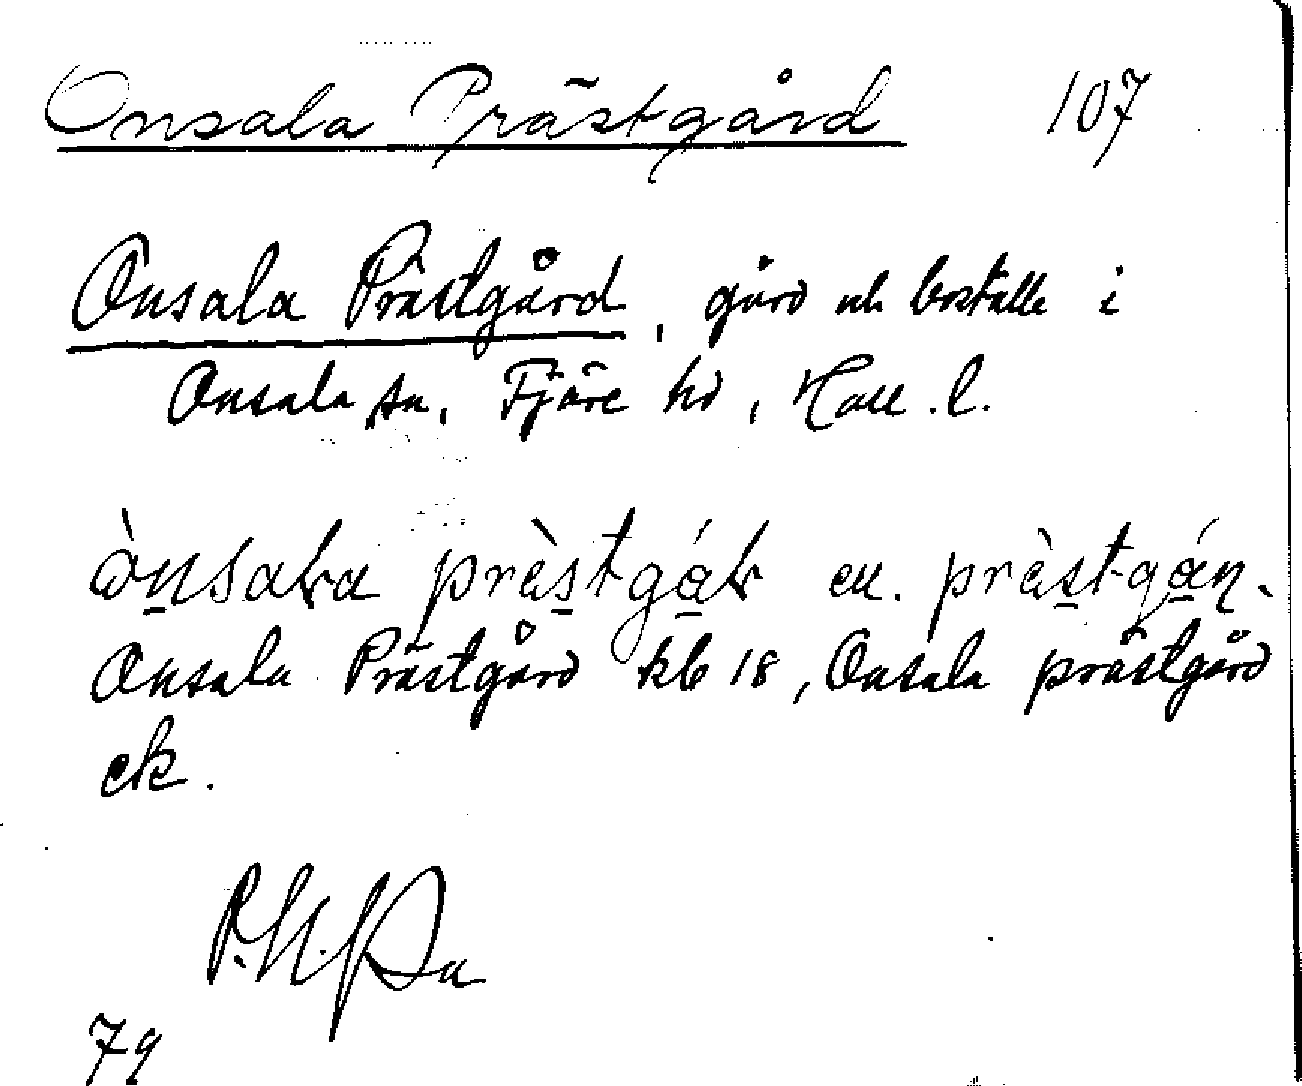 Onsala Prästgård 107
Onsala Prästgård, gård och boställe i
Onsala sn, Fjäre hd, Hall. l.
ònsaɫa prὲstgáɽ en. prὲstgáɳ.
Onsala Prästgård kb 18, Onsala prästgård
ek.
79